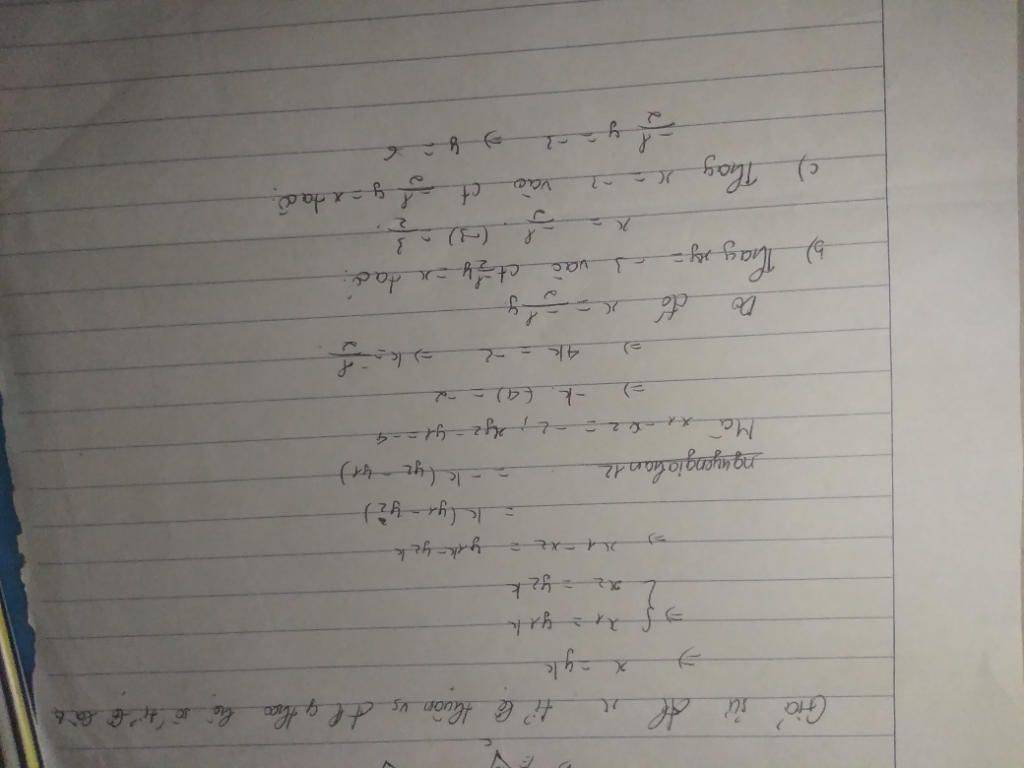 Giả sử đl x tỉ lệ thuận vs đl y theo hệ số tỉ lệ là k
=> x = yk
=> { x1 = y1k
x2 = y2k
=> x1 - x2 = y1k - y2k
= k (y1 - y2)
nguyengiahuan12 = -k (y2 - y1)
Mà x1 - x2 = -2, y2 - y1 = -4
=> -k. (4) = -2
=> 4k = -2 => k = -1/2
Do đó x = -1/2 y
b) Thay y = -3 vào ct -1/2 y = x ta có:
x = -1/2 . (-3) = 3/2.
c) Thay x = -3 vào ct -1/2 y = x ta có:
-1/2 y = -3 => y = 6